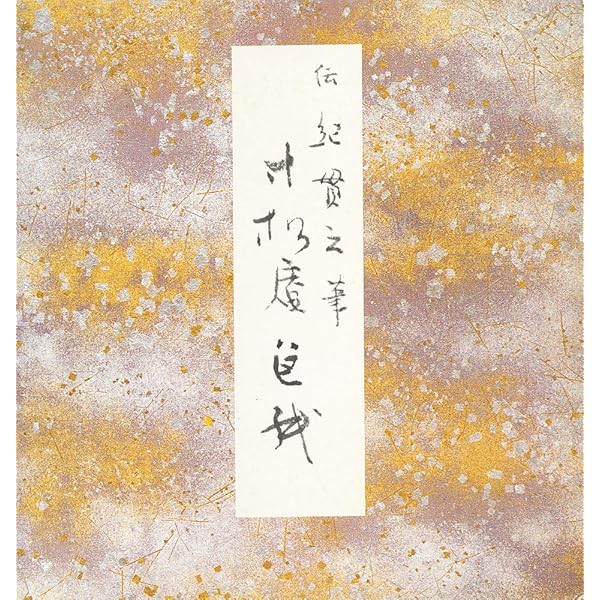 伝紀貫之筆
寸松庵色紙